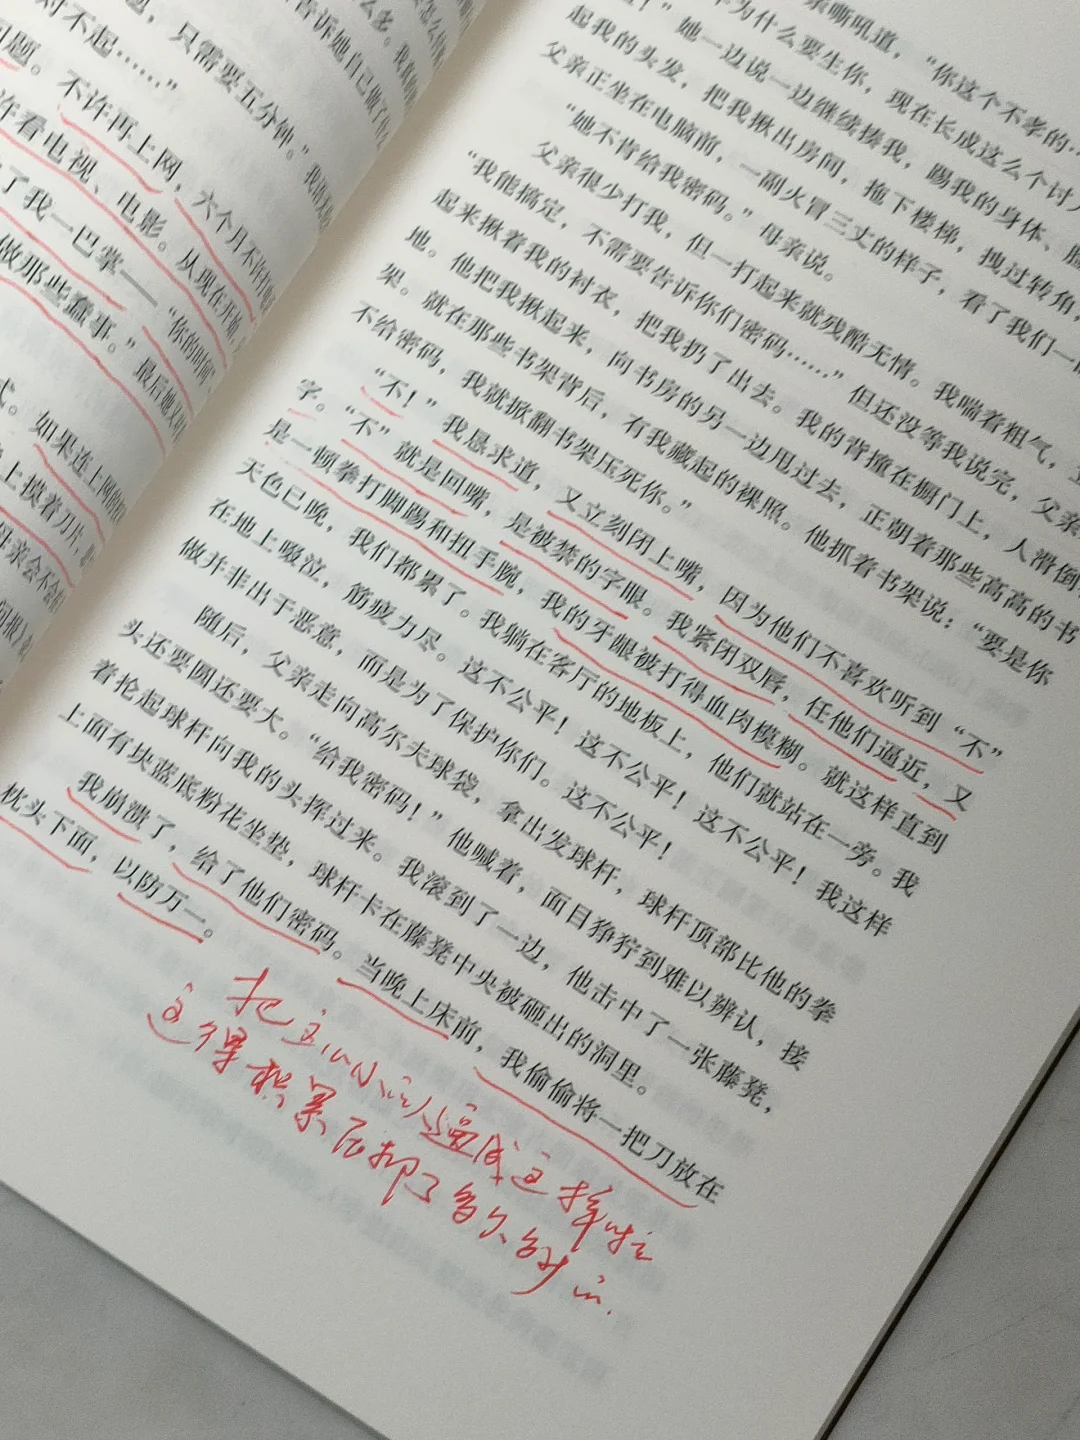 题，只需要五分钟。”
对不起……”
问题。不许再上网，六个月不许打电
许看电视、电影。从现在开始，
了我一巴掌——“你的时间
做那些蠢事。”最后她又
式。如果连上网的
上摸着刀片，
母亲会不会
亲嘶吼道，“你这个不孝的…
为什么要生你，现在长成这么个讨人
！”她一边说一边继续揍我，踢我的身体、脸
起我的头发，把我揪出房间，拖下楼梯，拽过转角，
父亲正坐在电脑前，一副火冒三丈的样子，看了我们一眼
“她不肯给我密码。”母亲说。
父亲很少打我，但一打起来就残酷无情。我喘着粗气，
“我能搞定，不需要告诉你们密码……”但还没等我说完，父亲
起来揪着我的衬衣，把我扔了出去。我的背撞在橱门上，人滑倒
地。他把我揪起来，向书房的另一边甩过去，正朝着那些高高的书
架。就在那些书架背后，有我藏起的裸照。他抓着书架说：“要是你
不给密码，我就掀翻书架压死你。”
“不！”我恳求道，又立刻闭上嘴，因为他们不喜欢听到“不”
字。“不”就是回嘴，是被禁的字眼。我紧闭双唇，任他们逼近，又
是一顿拳打脚踢和扭手腕，我的牙龈被打得血肉模糊。就这样直到
天色已晚，我们都累了。我躺在客厅的地板上，他们就站在一旁。我
在地上啜泣，筋疲力尽。这不公平！这不公平！这不公平！我这样
做并非出于恶意，而是为了保护你们。这不公平！
随后，父亲走向高尔夫球袋，拿出发球杆，球杆顶部比他的拳
头还要圆还要大。“给我密码！”他喊着，面目狰狞到难以辨认，接
着抡起球杆向我的头挥过来。我滚到了一边，他击中了一张藤凳，
上面有块蓝底粉花坐垫，球杆卡在藤凳中央被砸出的洞里。
我崩溃了，给了他们密码。当晚上床前，我偷偷将一把刀放在
枕头下面，以防万一。
把主人公逼成这样啦
这得积累压抑了多久的